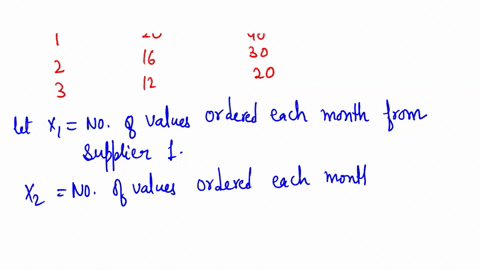 1 20 40
2 16 30
3 12 20
let X₁ = No. of values ordered each month from
Supplier 1.
X₂ = No. of values ordered each month